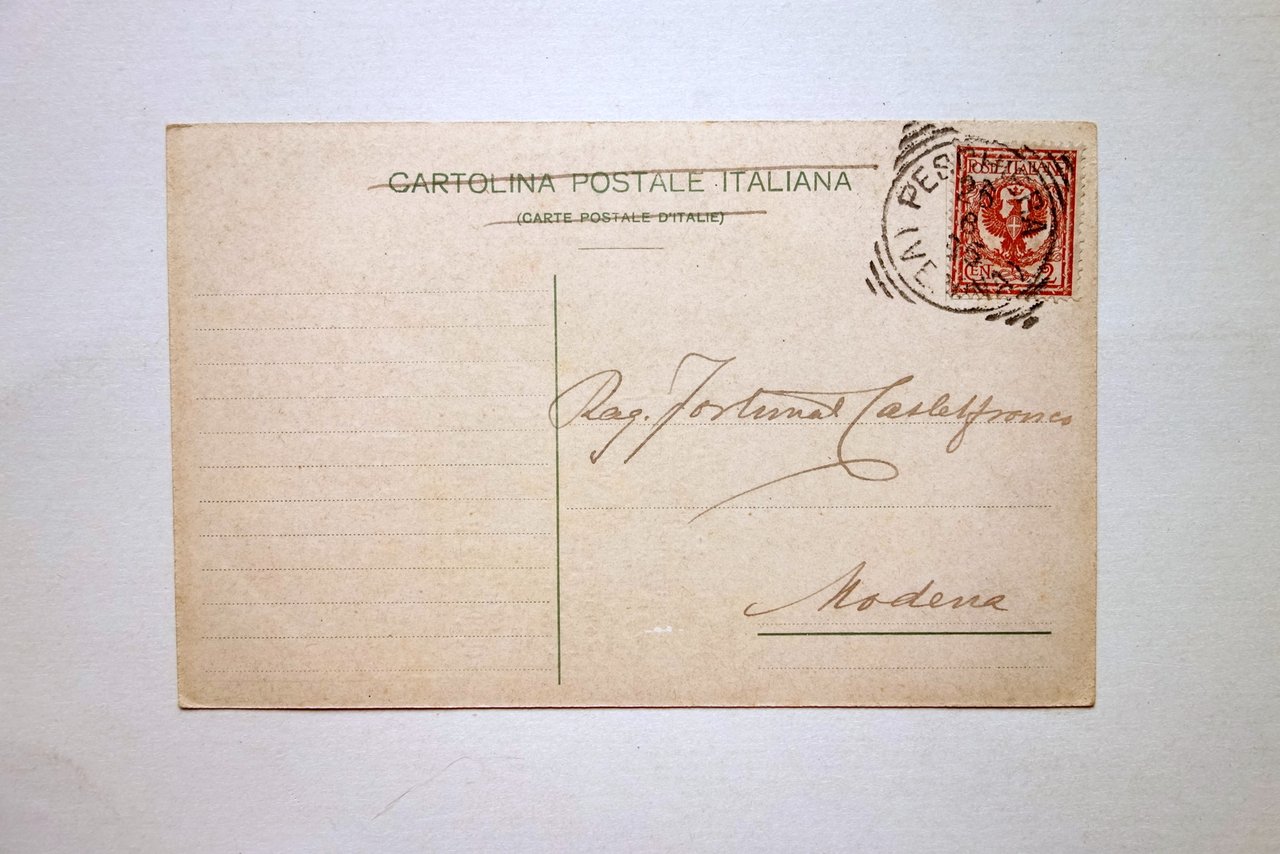 CARTOLINA POSTALE ITALIANA
(CARTE POSTALE D'ITALIE)
POSTE ITALIANE
2
Rag. Fortunat Castelfranco
Modena